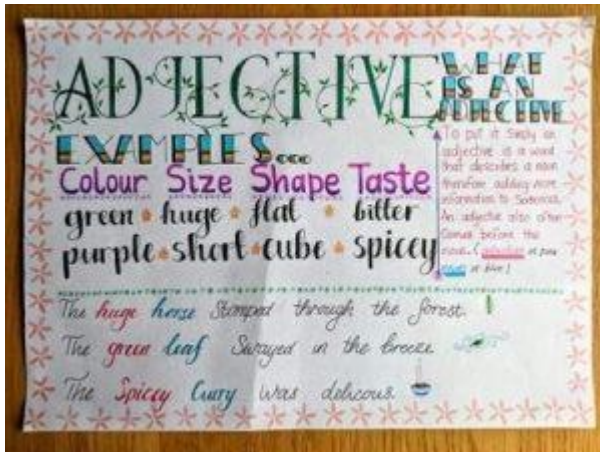 ADJECTIVE
WHAT
IS AN
ADJECTIVE
EXAMPLES...
To put it simply an
adjective is a word
that describes a noun
therefore adding more
information to sentences.
An adjective also often
comes before the
noun. ( adjective in pink
noun in blue )
Colour Size Shape Taste
green huge flat bitter
purple short cube spicey
The huge horse Stomped through the forest.
The green leaf Swayed in the breeze.
The Spicey Curry was delicous.